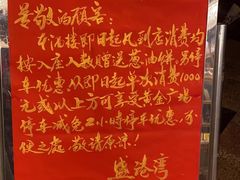 尊敬的顾客:
本酒楼即日起凡到店消费均
按入座人数赠送葱油饼,另停
车优惠从即日起单次消费1000
元或以上方可享受黄金广场
停车减免2小时停车优惠,不
便之处敬请原谅!
盛港湾